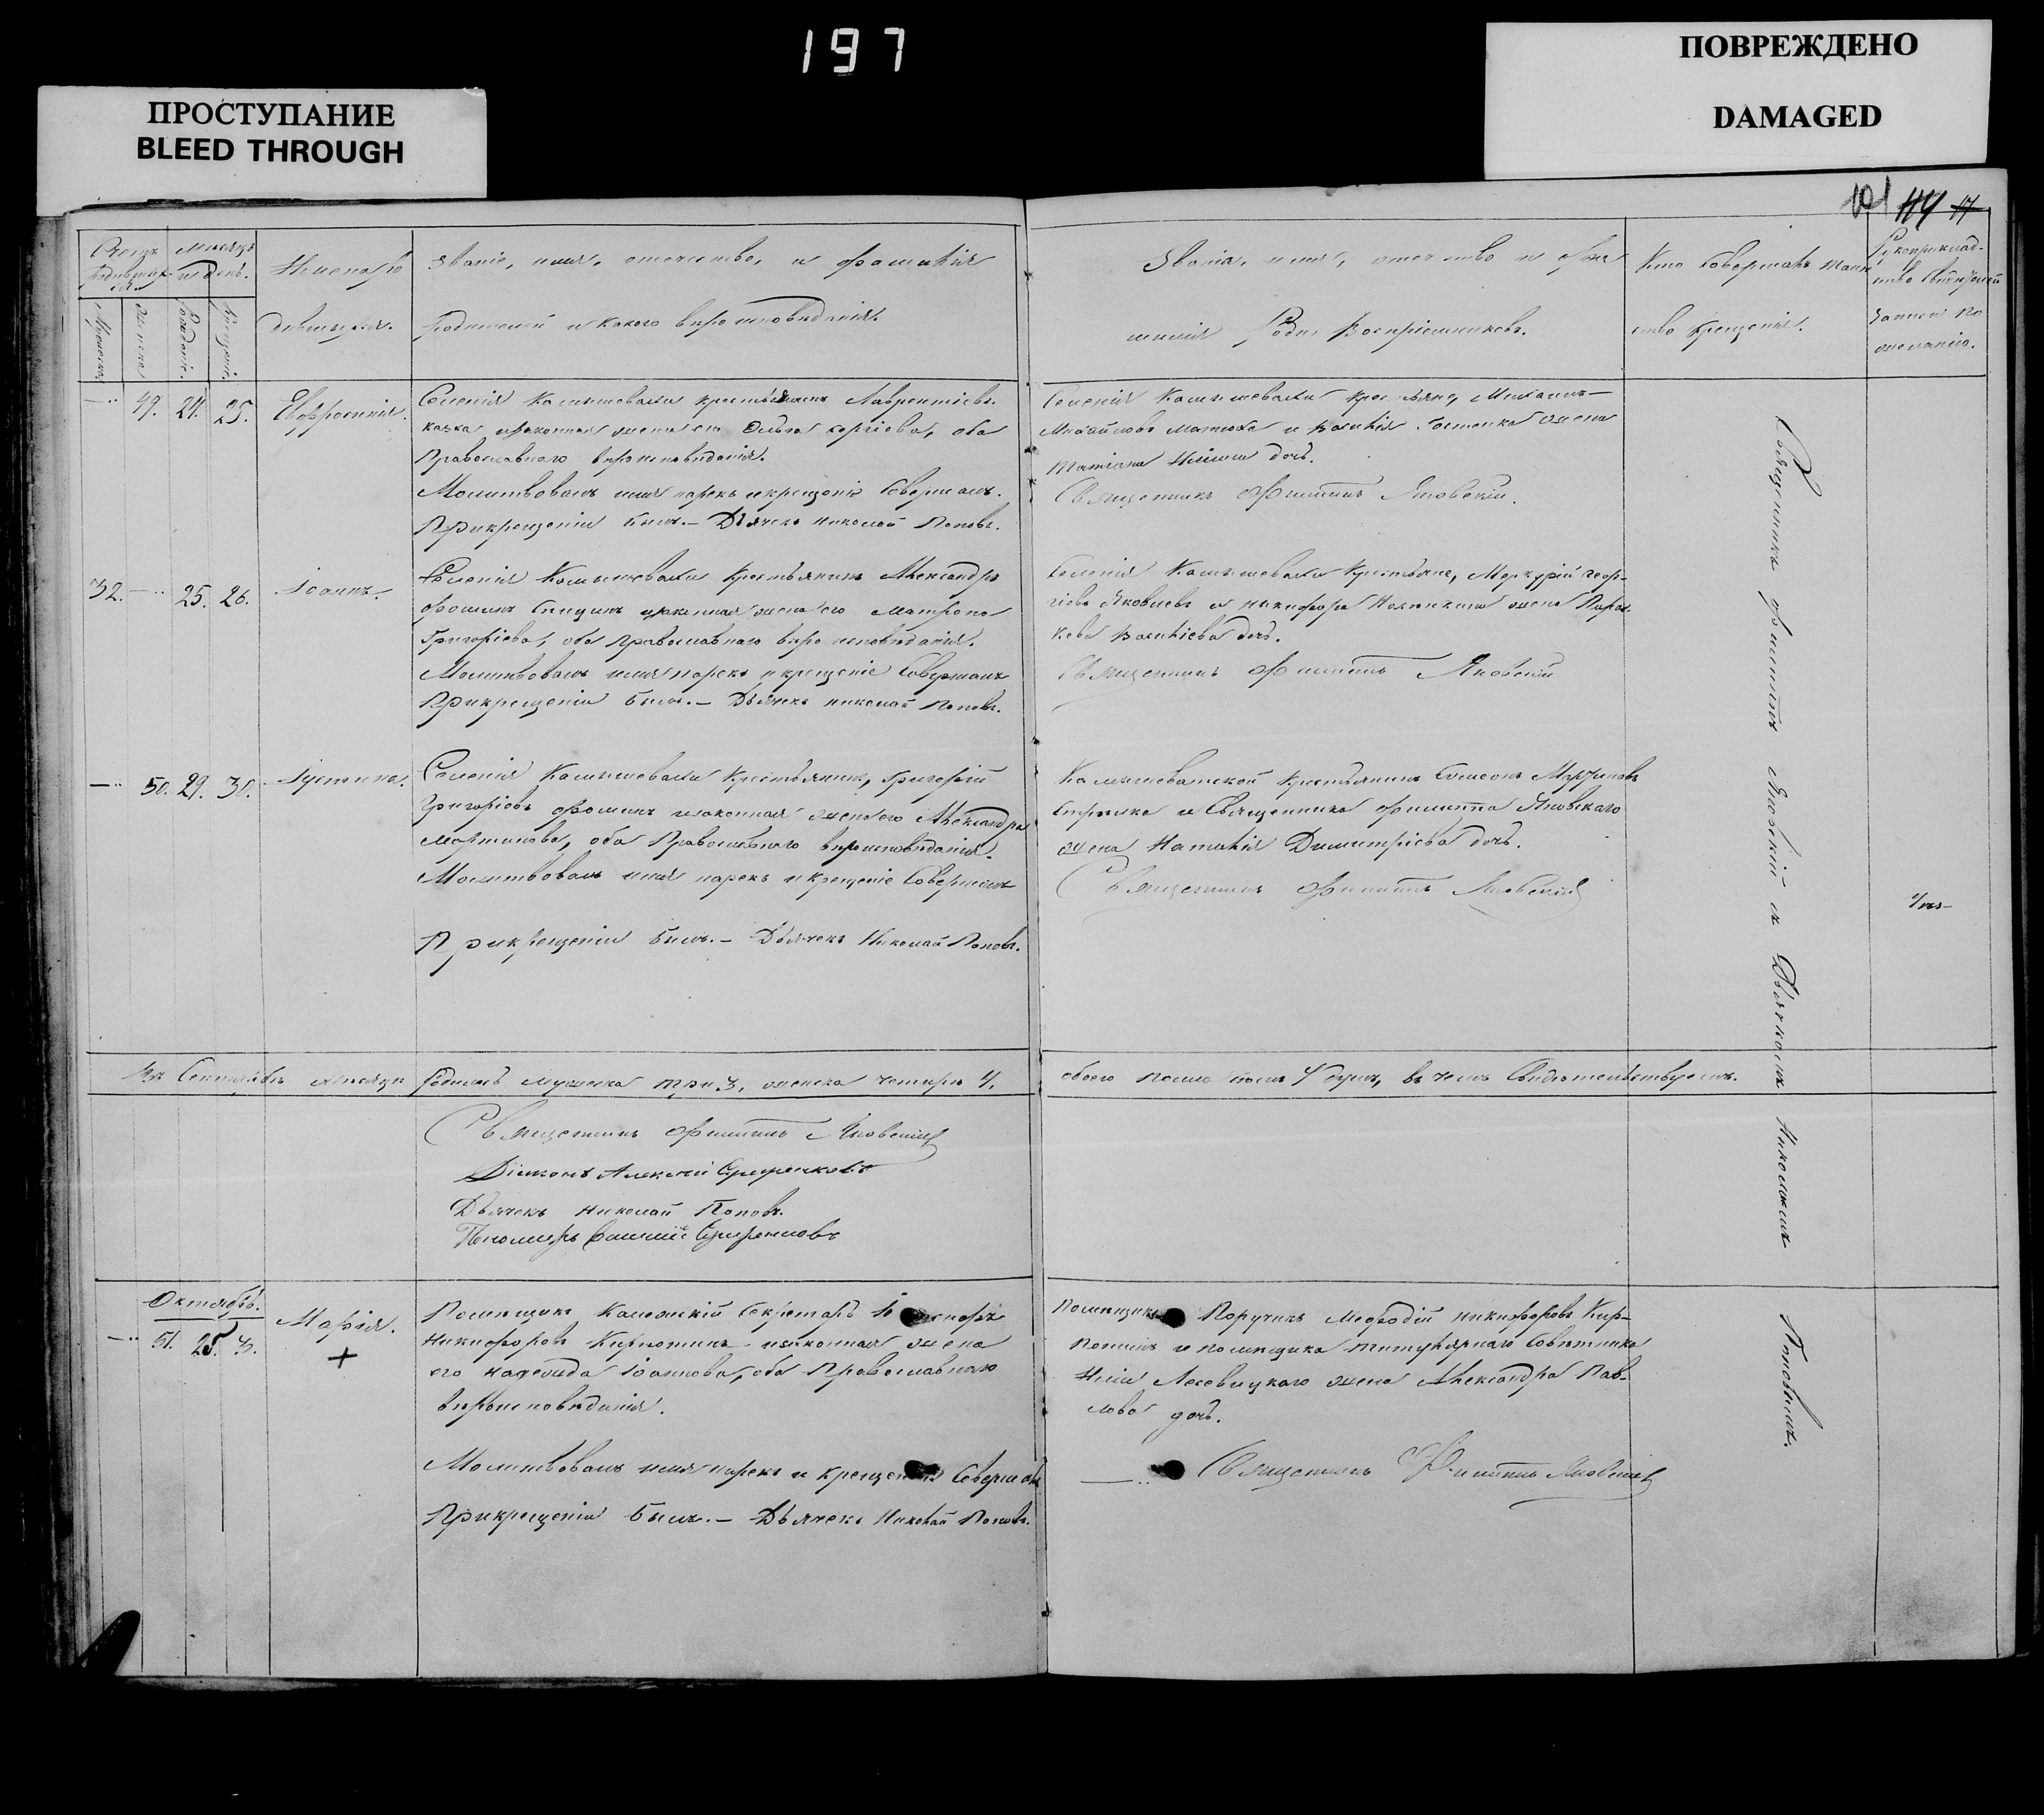 197
ПРОСТУПАНИЕ
BLEED THROUGH
ПОВРЕЖДЕНО
DAMAGED
101 114 17
Счетъ родившихся. Мѣсяцъ и день.
Мужеска Женска Рожденіе. Крещеніе.
Имена ро
дившихся.
Званіе, имя, отечество, и фамилія
Родителей и какого вѣроисповѣданія.
Званіе, имя, отечество и фа
милія Воспріемниковъ.
Кто совершалъ таин
ство крещенія.
Рукоприклад-
ство свидѣтелей
записи по
желанію.
— 49. 24. 25. Евфросинія.
Селенія Камышевахи крестьянинъ Лаврентіевъ
законная жена его Ольга Сергіева, оба
Православнаго вѣроисповѣданія.
Молитвовалъ имя нарекъ и крещеніе совершалъ.
При крещеніи былъ.— Дьячекъ Николай Поповъ.
Селенія Камышевахи крестьяне, Михаилъ
Михайловъ и жена
Татіана дочь.
Священникъ Филиппъ Яновскій.
32. — 25. 26. Іоаннъ.
Селенія Камышевахи Крестьянинъ Александръ
Фоминъ изаконная жена его Матрона
Григоріева, оба Православнаго вѣроисповѣданія.
Молитвовалъ имя нарекъ и крещеніе совершалъ
При крещеніи былъ.— Дьячекъ Николай Поповъ.
Селенія Камышевахи Крестьяне, Меркурій Геор-
гіевъ Яковлевъ и Никифора жена Парас-
кева Василіева дочь.
Священникъ Филиппъ Яновскій
— 50. 29. 30. Іустина.
Селенія Камышевахи Крестьянинъ, Григорій
Григоріевъ Фоминъ изаконная жена его Александра
Мартинова, оба Православнаго вѣроисповѣданія.
Молитвовалъ имя нарекъ и крещеніе совершалъ
При крещеніи былъ.— Дьячекъ Николай Поповъ.
Камышеватской Крестьянинъ Симеонъ
и Священника Филиппа Яновскаго
жена Наталія Димитріева дочь.
Священникъ Филиппъ Яновскій
Въ Сентябрѣ мѣсяцѣ родилось мужеска три 3, женска четыре 4, обоего пола семь 7 душъ, въ чемъ свидѣтельствуемъ.
Священникъ Филиппъ Яновскій
Діаконъ Алексій
Дьячекъ Николай Поповъ.
Пономарь
Октябрь.
— 51. 25. 3. Марія.
Помѣщикъ Коллежскій Секретарь
Никифоровъ Кирпотинъ изаконная жена
его Надежда Іоаннова, оба Православнаго
вѣроисповѣданія.
Молитвовалъ имя нарекъ и крещеніе совершалъ
При крещеніи былъ.— Дьячекъ Николай Поповъ.
Помѣщикъ Поручикъ Мефодій Никифоровъ Кир-
потинъ и помѣщика титулярнаго Совѣтника
Иліи жена Александра Пав-
лова дочь.
Священникъ Филиппъ Яновскій
Священникъ Филиппъ Яновскій съ Дьячкомъ Николаемъ Поповымъ.